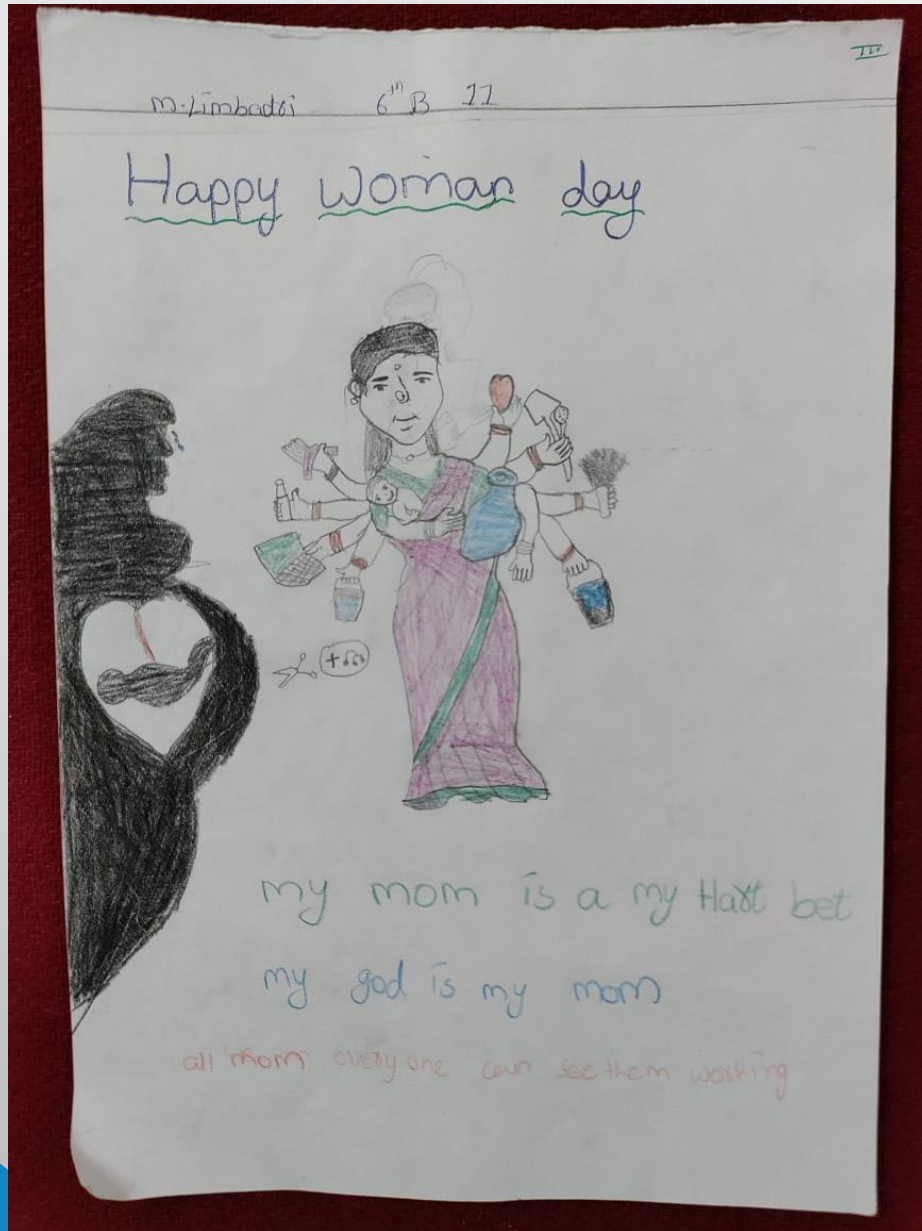 III
m.Limbadri 6th B 11
Happy woman day
my mom is a my Hart bet
my god is my mom
all mom everyone can see them working